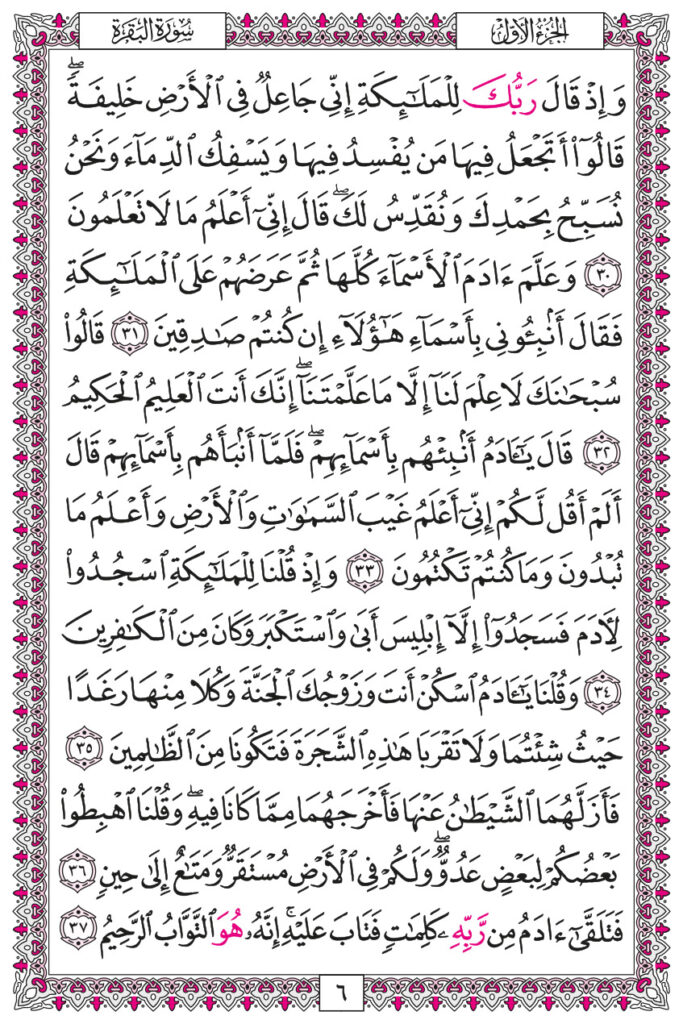 سُورَةُ البَقَرَةِ
الجُزءُ الأَوَّلُ
وَإِذْ قَالَ رَبُّكَ لِلْمَلَـٰٓئِكَةِ إِنِّى جَاعِلٌ فِى ٱلْأَرْضِ خَلِيفَةً ۖ
قَالُوٓا۟ أَتَجْعَلُ فِيهَا مَن يُفْسِدُ فِيهَا وَيَسْفِكُ ٱلدِّمَآءَ وَنَحْنُ
نُسَبِّحُ بِحَمْدِكَ وَنُقَدِّسُ لَكَ ۖ قَالَ إِنِّىٓ أَعْلَمُ مَا لَا تَعْلَمُونَ
٣٠ وَعَلَّمَ ءَادَمَ ٱلْأَسْمَآءَ كُلَّهَا ثُمَّ عَرَضَهُمْ عَلَى ٱلْمَلَـٰٓئِكَةِ
فَقَالَ أَنۢبِـُٔونِى بِأَسْمَآءِ هَـٰٓؤُلَآءِ إِن كُنتُمْ صَـٰدِقِينَ ٣١ قَالُوا۟
سُبْحَـٰنَكَ لَا عِلْمَ لَنَآ إِلَّا مَا عَلَّمْتَنَآ ۖ إِنَّكَ أَنتَ ٱلْعَلِيمُ ٱلْحَكِيمُ
٣٢ قَالَ يَـٰٓـَٔادَمُ أَنۢبِئْهُم بِأَسْمَآئِهِمْ ۖ فَلَمَّآ أَنۢبَأَهُم بِأَسْمَآئِهِمْ قَالَ
أَلَمْ أَقُل لَّكُمْ إِنِّىٓ أَعْلَمُ غَيْبَ ٱلسَّمَـٰوَٰتِ وَٱلْأَرْضِ وَأَعْلَمُ مَا
تُبْدُونَ وَمَا كُنتُمْ تَكْتُمُونَ ٣٣ وَإِذْ قُلْنَا لِلْمَلَـٰٓئِكَةِ ٱسْجُدُوا۟
لِـَٔادَمَ فَسَجَدُوٓا۟ إِلَّآ إِبْلِيسَ أَبَىٰ وَٱسْتَكْبَرَ وَكَانَ مِنَ ٱلْكَـٰفِرِينَ
٣٤ وَقُلْنَا يَـٰٓـَٔادَمُ ٱسْكُنْ أَنتَ وَزَوْجُكَ ٱلْجَنَّةَ وَكُلَا مِنْهَا رَغَدًا
حَيْثُ شِئْتُمَا وَلَا تَقْرَبَا هَـٰذِهِ ٱلشَّجَرَةَ فَتَكُونَا مِنَ ٱلظَّـٰلِمِينَ ٣٥
فَأَزَلَّهُمَا ٱلشَّيْطَـٰنُ عَنْهَا فَأَخْرَجَهُمَا مِمَّا كَانَا فِيهِ ۖ وَقُلْنَا ٱهْبِطُوا۟
بَعْضُكُمْ لِبَعْضٍ عَدُوٌّ ۖ وَلَكُمْ فِى ٱلْأَرْضِ مُسْتَقَرٌّ وَمَتَـٰعٌ إِلَىٰ حِينٍ ٣٦
فَتَلَقَّىٰٓ ءَادَمُ مِن رَّبِّهِۦ كَلِمَـٰتٍ فَتَابَ عَلَيْهِ ۚ إِنَّهُۥ هُوَ ٱلتَّوَّابُ ٱلرَّحِيمُ ٣٧
٦